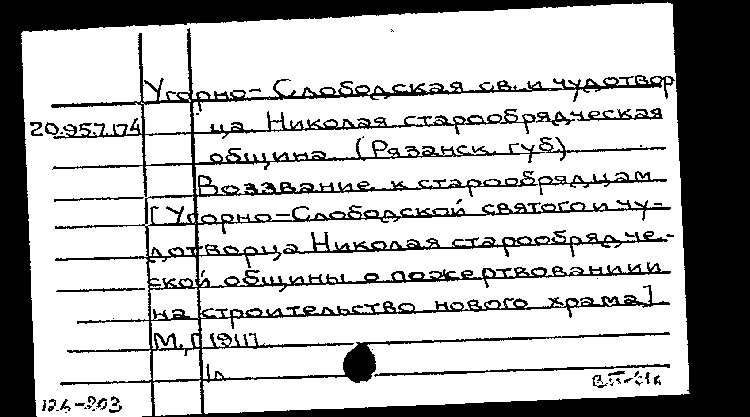 Угорно-Слободская св. и чудотвор
20.95.7.174 ца Николая старообрядческая
община (Рязанск. губ).
Воззвание к старообрядцам
[Угорно-Слободской святого и чу-
дотворца Николая старообрядче-
ской общины о пожертвованиии
на строительство нового храма].
М., [1911]
1л